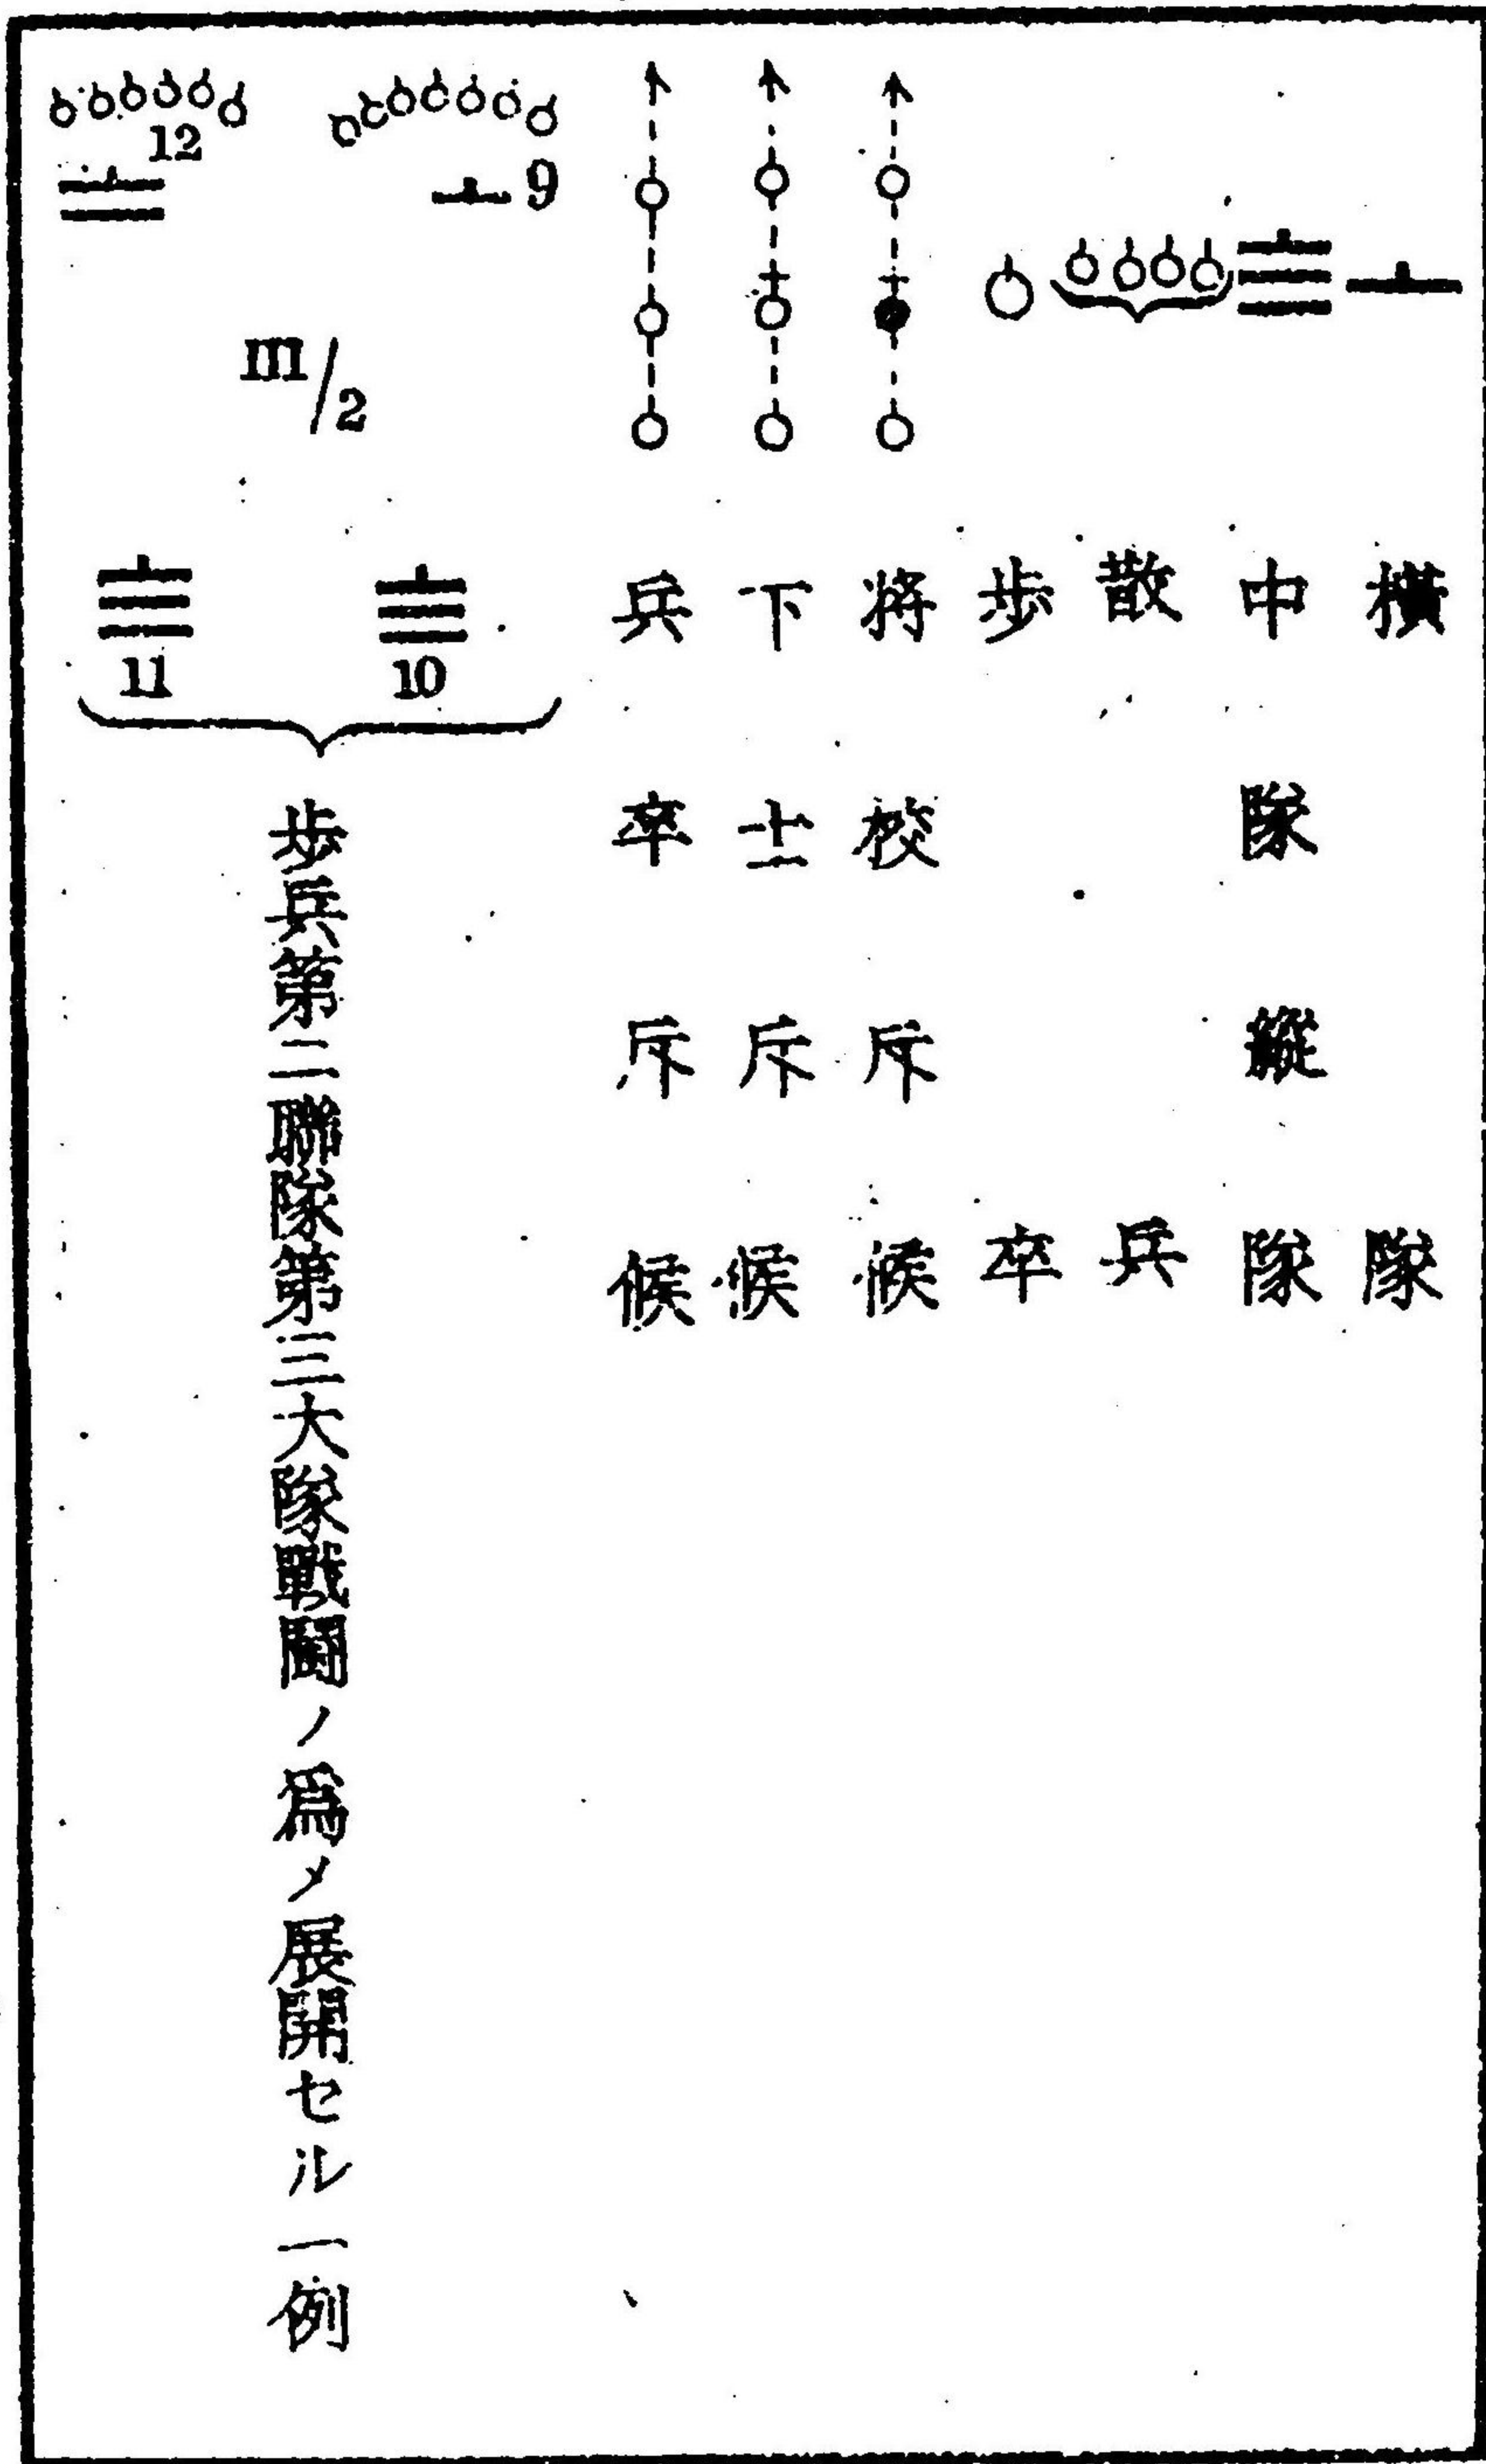 橫隊
中隊縱隊
散兵
步卒
將校斥候
下士斥候
兵卒斥候
9
12
III/2
10
11
步兵第二聯隊第三大隊戰鬪ノ爲メ展開セル一例